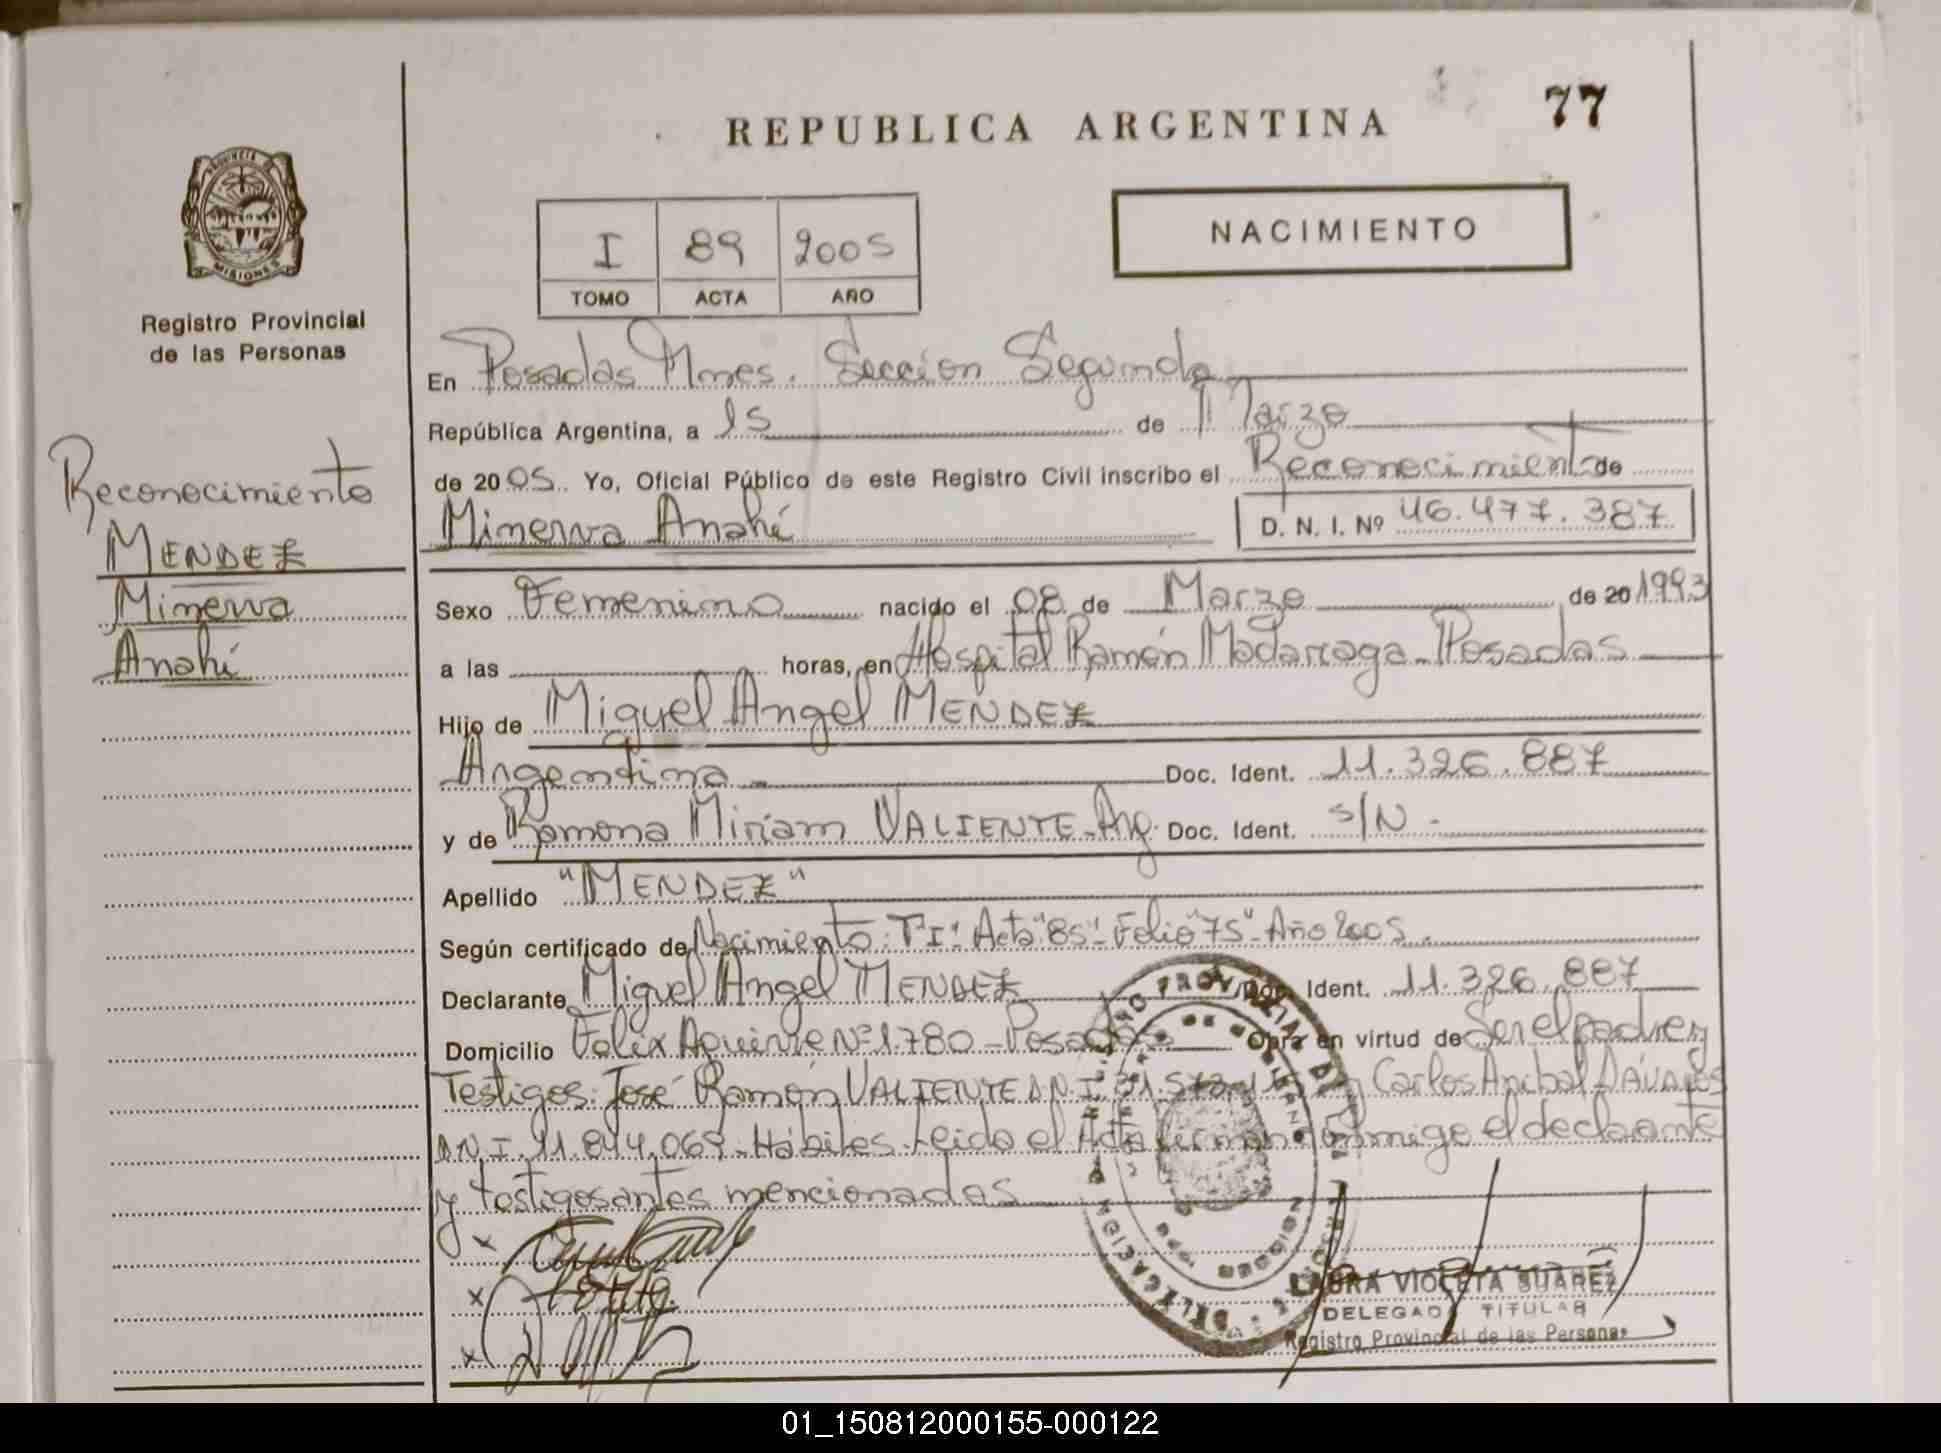 REPUBLICA ARGENTINA
77
PROVINCIA DE
MISIONES
Registro Provincial
de las Personas
I 89 2005
TOMO ACTA AÑO
NACIMIENTO
En Posadas Mnes. Sección Segunda
República Argentina, a 15 de Marzo
de 2005. Yo, Oficial Público de este Registro Civil inscribo el Reconocimiento de
Minerva Anahí D. N. I. Nº 46.477.387
Reconocimiento
MENDEZ
Minerva
Anahí
Sexo Femenino nacido el 08 de Marzo de 20 1993
a las horas, en Hospital Ramón Madarcaga - Posadas
Hijo de Miguel Angel MENDEZ
Argentina Doc. Ident. 11.326.887
y de Ramona Miriam VALIENTE - Arg. Doc. Ident. S/N.
Apellido "MENDEZ"
Según certificado de Nacimiento: T"I" Acta "85" - Folio "75" - Año 2005.
Declarante Miguel Angel MENDEZ Doc. Ident. 11.326.887
Domicilio Felix Aguirre Nº 1.780 - Posadas Obra en virtud de Ser el padre y
Testigos: José Ramón VALIENTE D.N.I. y Carlos Anibal DÁVALOS
D.N.I. 11.844.069 - Hábiles. Leido el Acta firman conmigo el declarante
y testigos antes mencionados
LAURA VIOLETA SUAREZ
DELEGADO TITULAR
Registro Provincial de las Personas
01_150812000155-000122